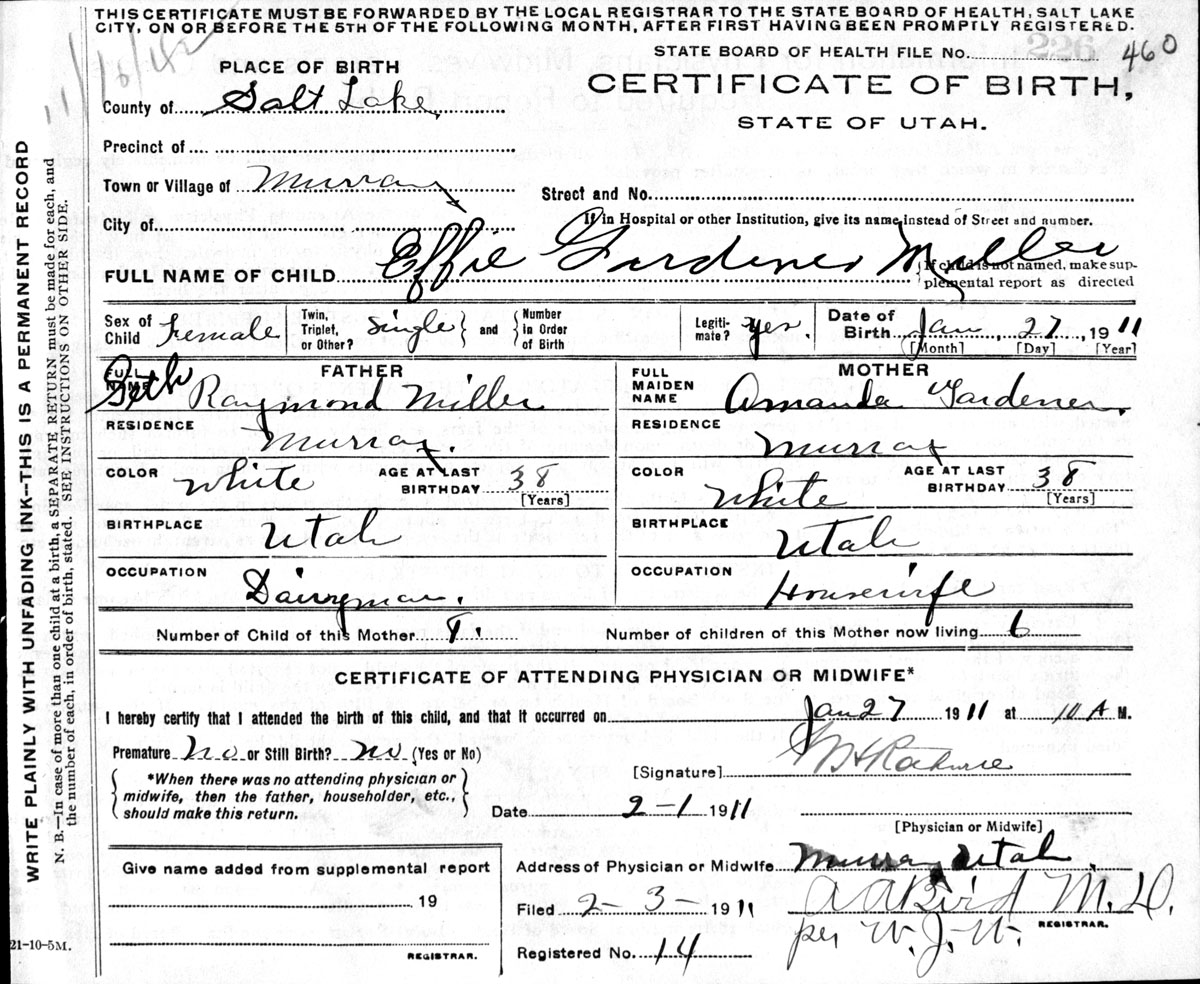 THIS CERTIFICATE MUST BE FORWARDED BY THE LOCAL REGISTRAR TO THE STATE BOARD OF HEALTH, SALT LAKE
CITY, ON OR BEFORE THE 5TH OF THE FOLLOWING MONTH, AFTER FIRST HAVING BEEN PROMPTLY REGISTERED.
STATE BOARD OF HEALTH FILE No. 460
PLACE OF BIRTH
CERTIFICATE OF BIRTH,
STATE OF UTAH.
County of Salt Lake
Precinct of
Town or Village of Murray
Street and No.
City of
If in Hospital or other Institution, give its name instead of Street and number.
FULL NAME OF CHILD Effie Gardener Miller
If child is not named, make sup-
plemental report as directed
Sex of Child Female
Twin, Triplet, or Other? Single and Number in Order of Birth
Legiti- mate? yes.
Date of Birth Jan, 27, 1911
[Month] [Day] [Year]
FATHER
FULL NAME Seth Raymond Miller
RESIDENCE Murray.
COLOR White AGE AT LAST BIRTHDAY 38 [Years]
BIRTHPLACE Utah
OCCUPATION Dairyman.
MOTHER
FULL MAIDEN NAME Amanda Gardener.
RESIDENCE Murray
COLOR White AGE AT LAST BIRTHDAY 38 [Years]
BIRTHPLACE Utah
OCCUPATION Housewife
Number of Child of this Mother
Number of children of this Mother now living 6
CERTIFICATE OF ATTENDING PHYSICIAN OR MIDWIFE*
I hereby certify that I attended the birth of this child, and that it occurred on Jan 27 1911 at 10 A M.
Premature no or Still Birth? no (Yes or No)
*When there was no attending physician or
midwife, then the father, householder, etc.,
should make this return.
[Signature]
Date 2-1 1911
[Physician or Midwife]
Give name added from supplemental report
19
REGISTRAR.
Address of Physician or Midwife Murray Utah
Filed 2-3- 1911
A A Bird M.D.
per W. J. W.
REGISTRAR.
Registered No. 14
21-10-5M.
WRITE PLAINLY WITH UNFADING INK--THIS IS A PERMANENT RECORD
N. B.—In case of more than one child at a birth, a SEPARATE RETURN must be made for each, and
the number of each, in order of birth, stated. SEE INSTRUCTIONS ON OTHER SIDE.